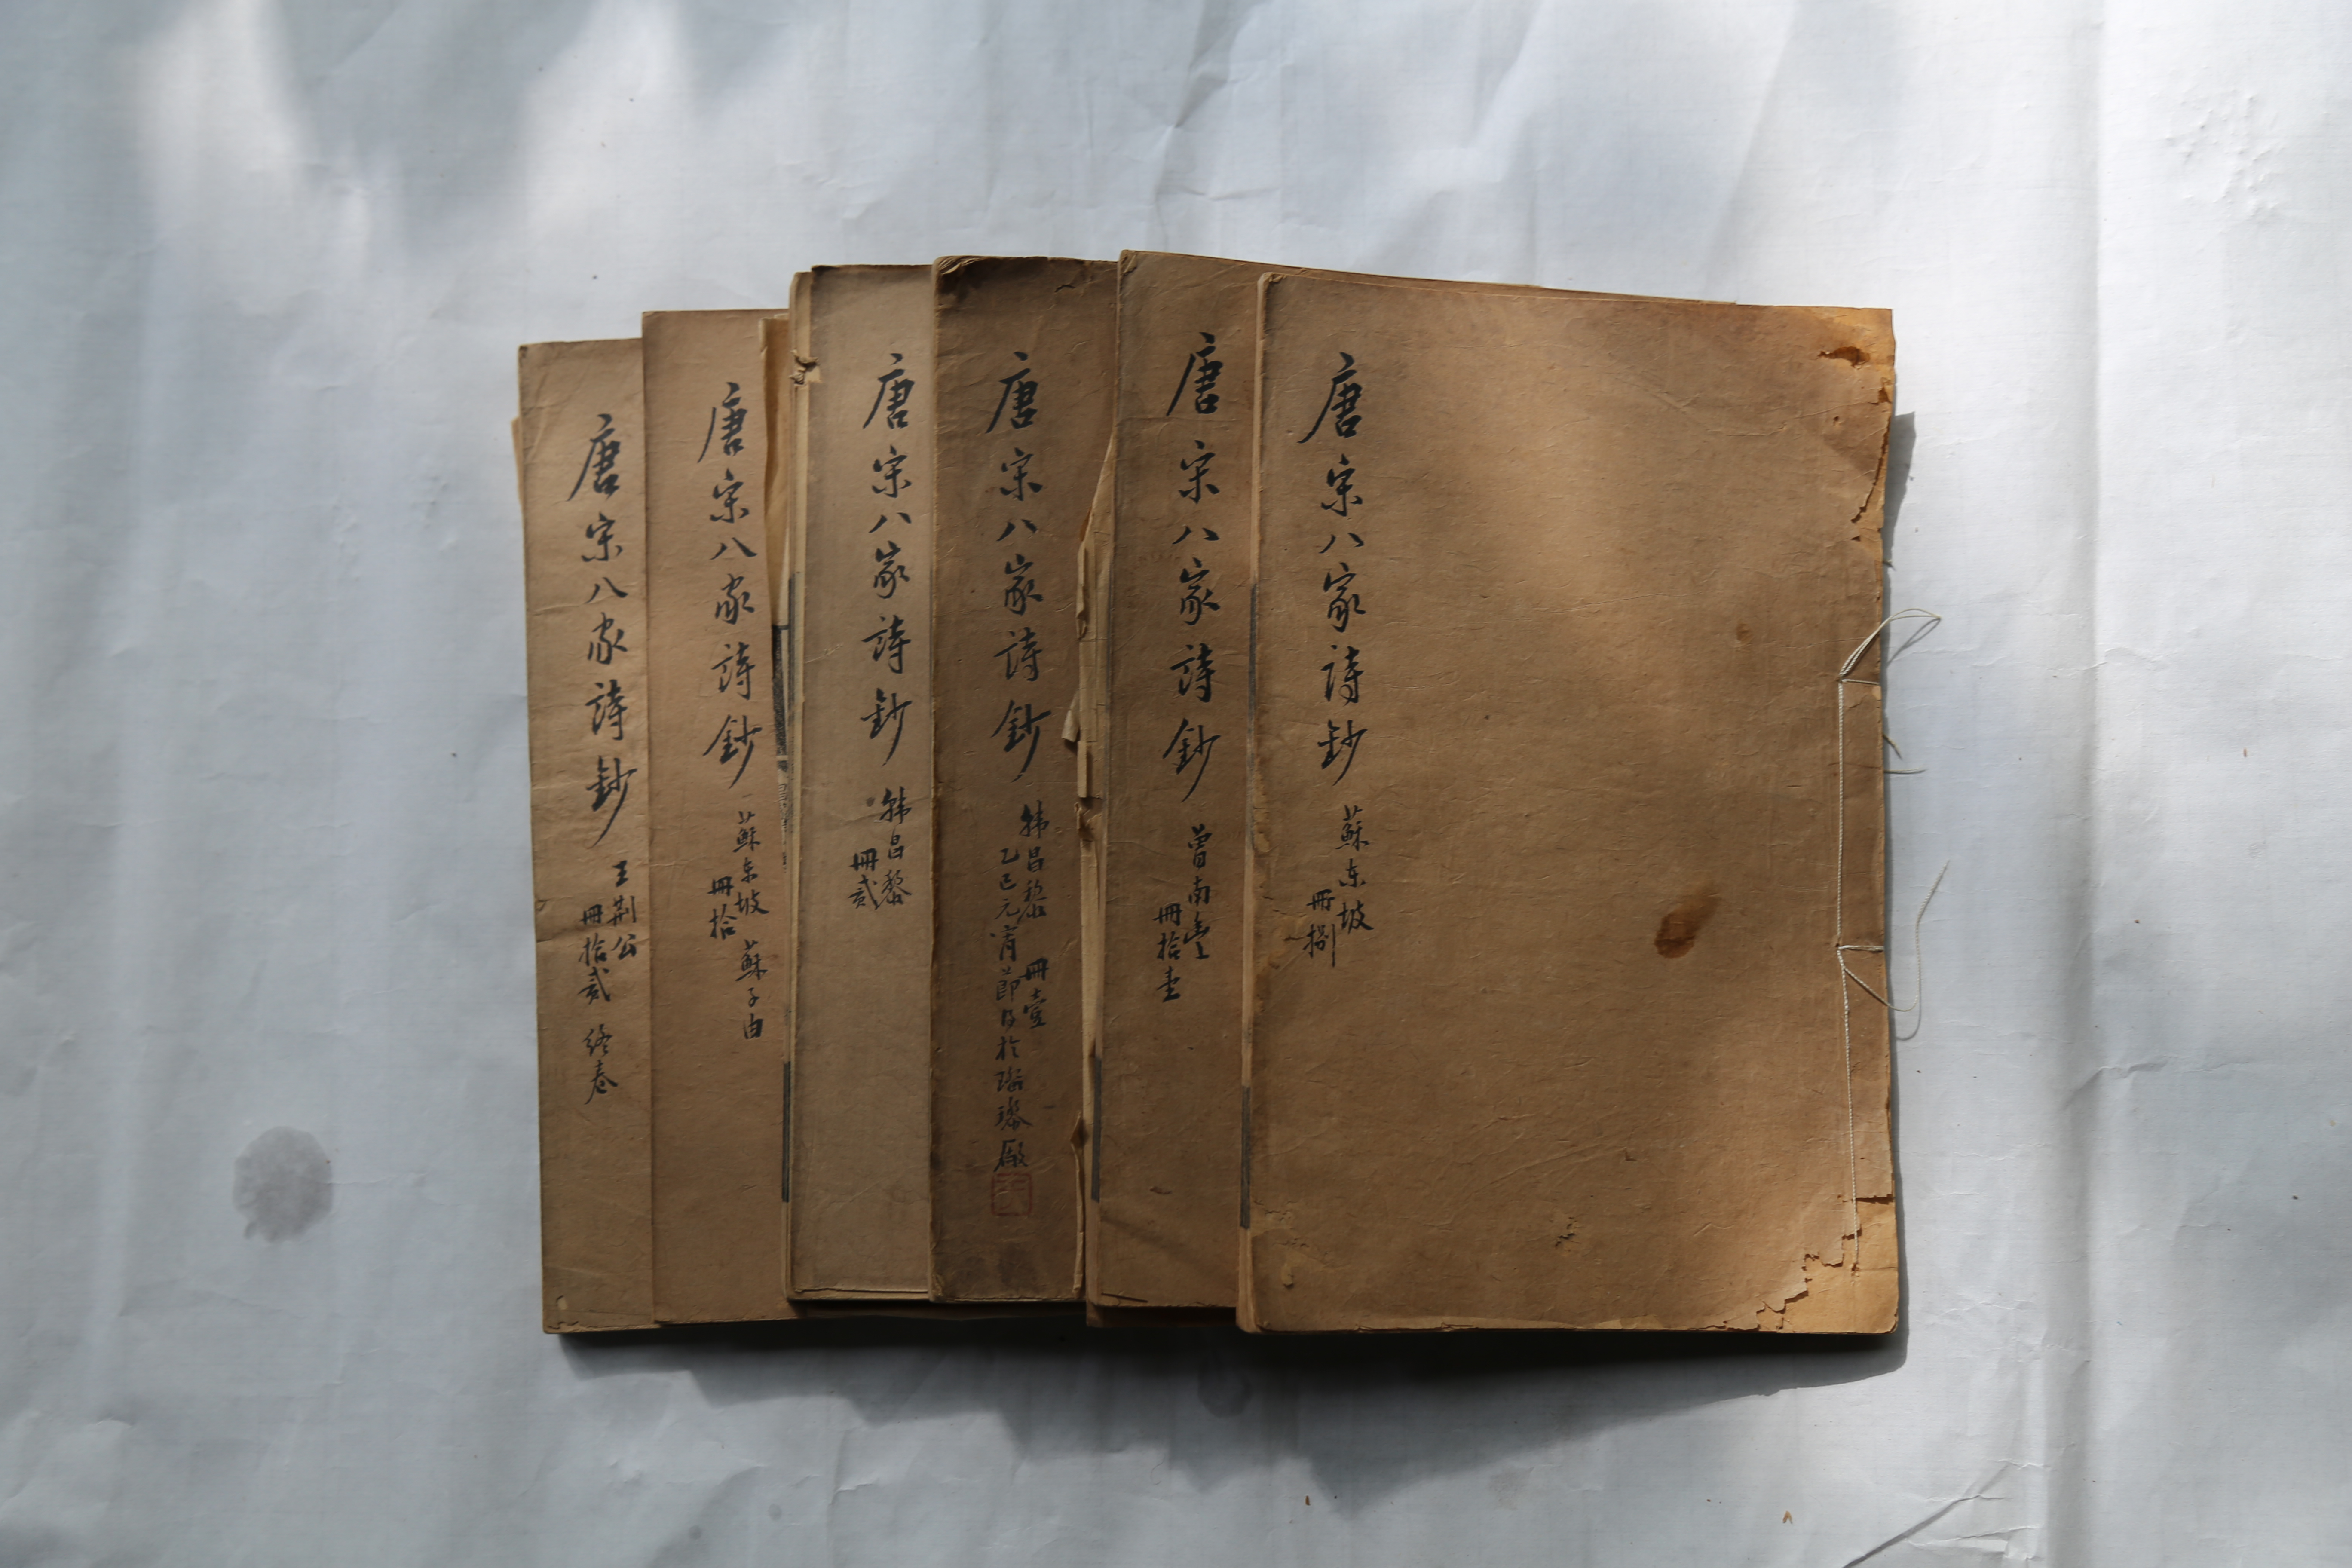 唐宋八家詩鈔
蘇东坡
冊捌
唐宋八家詩鈔
曾南豊
冊拾壹
唐宋八家詩鈔
韩昌黎 冊壹
乙巳元宵節日於瑠璃廠
唐宋八家詩鈔
韩昌黎
冊貳
唐宋八家詩鈔
蘇东坡 蘇子由
冊拾
唐宋八家詩鈔
王荆公
冊拾貳 终卷